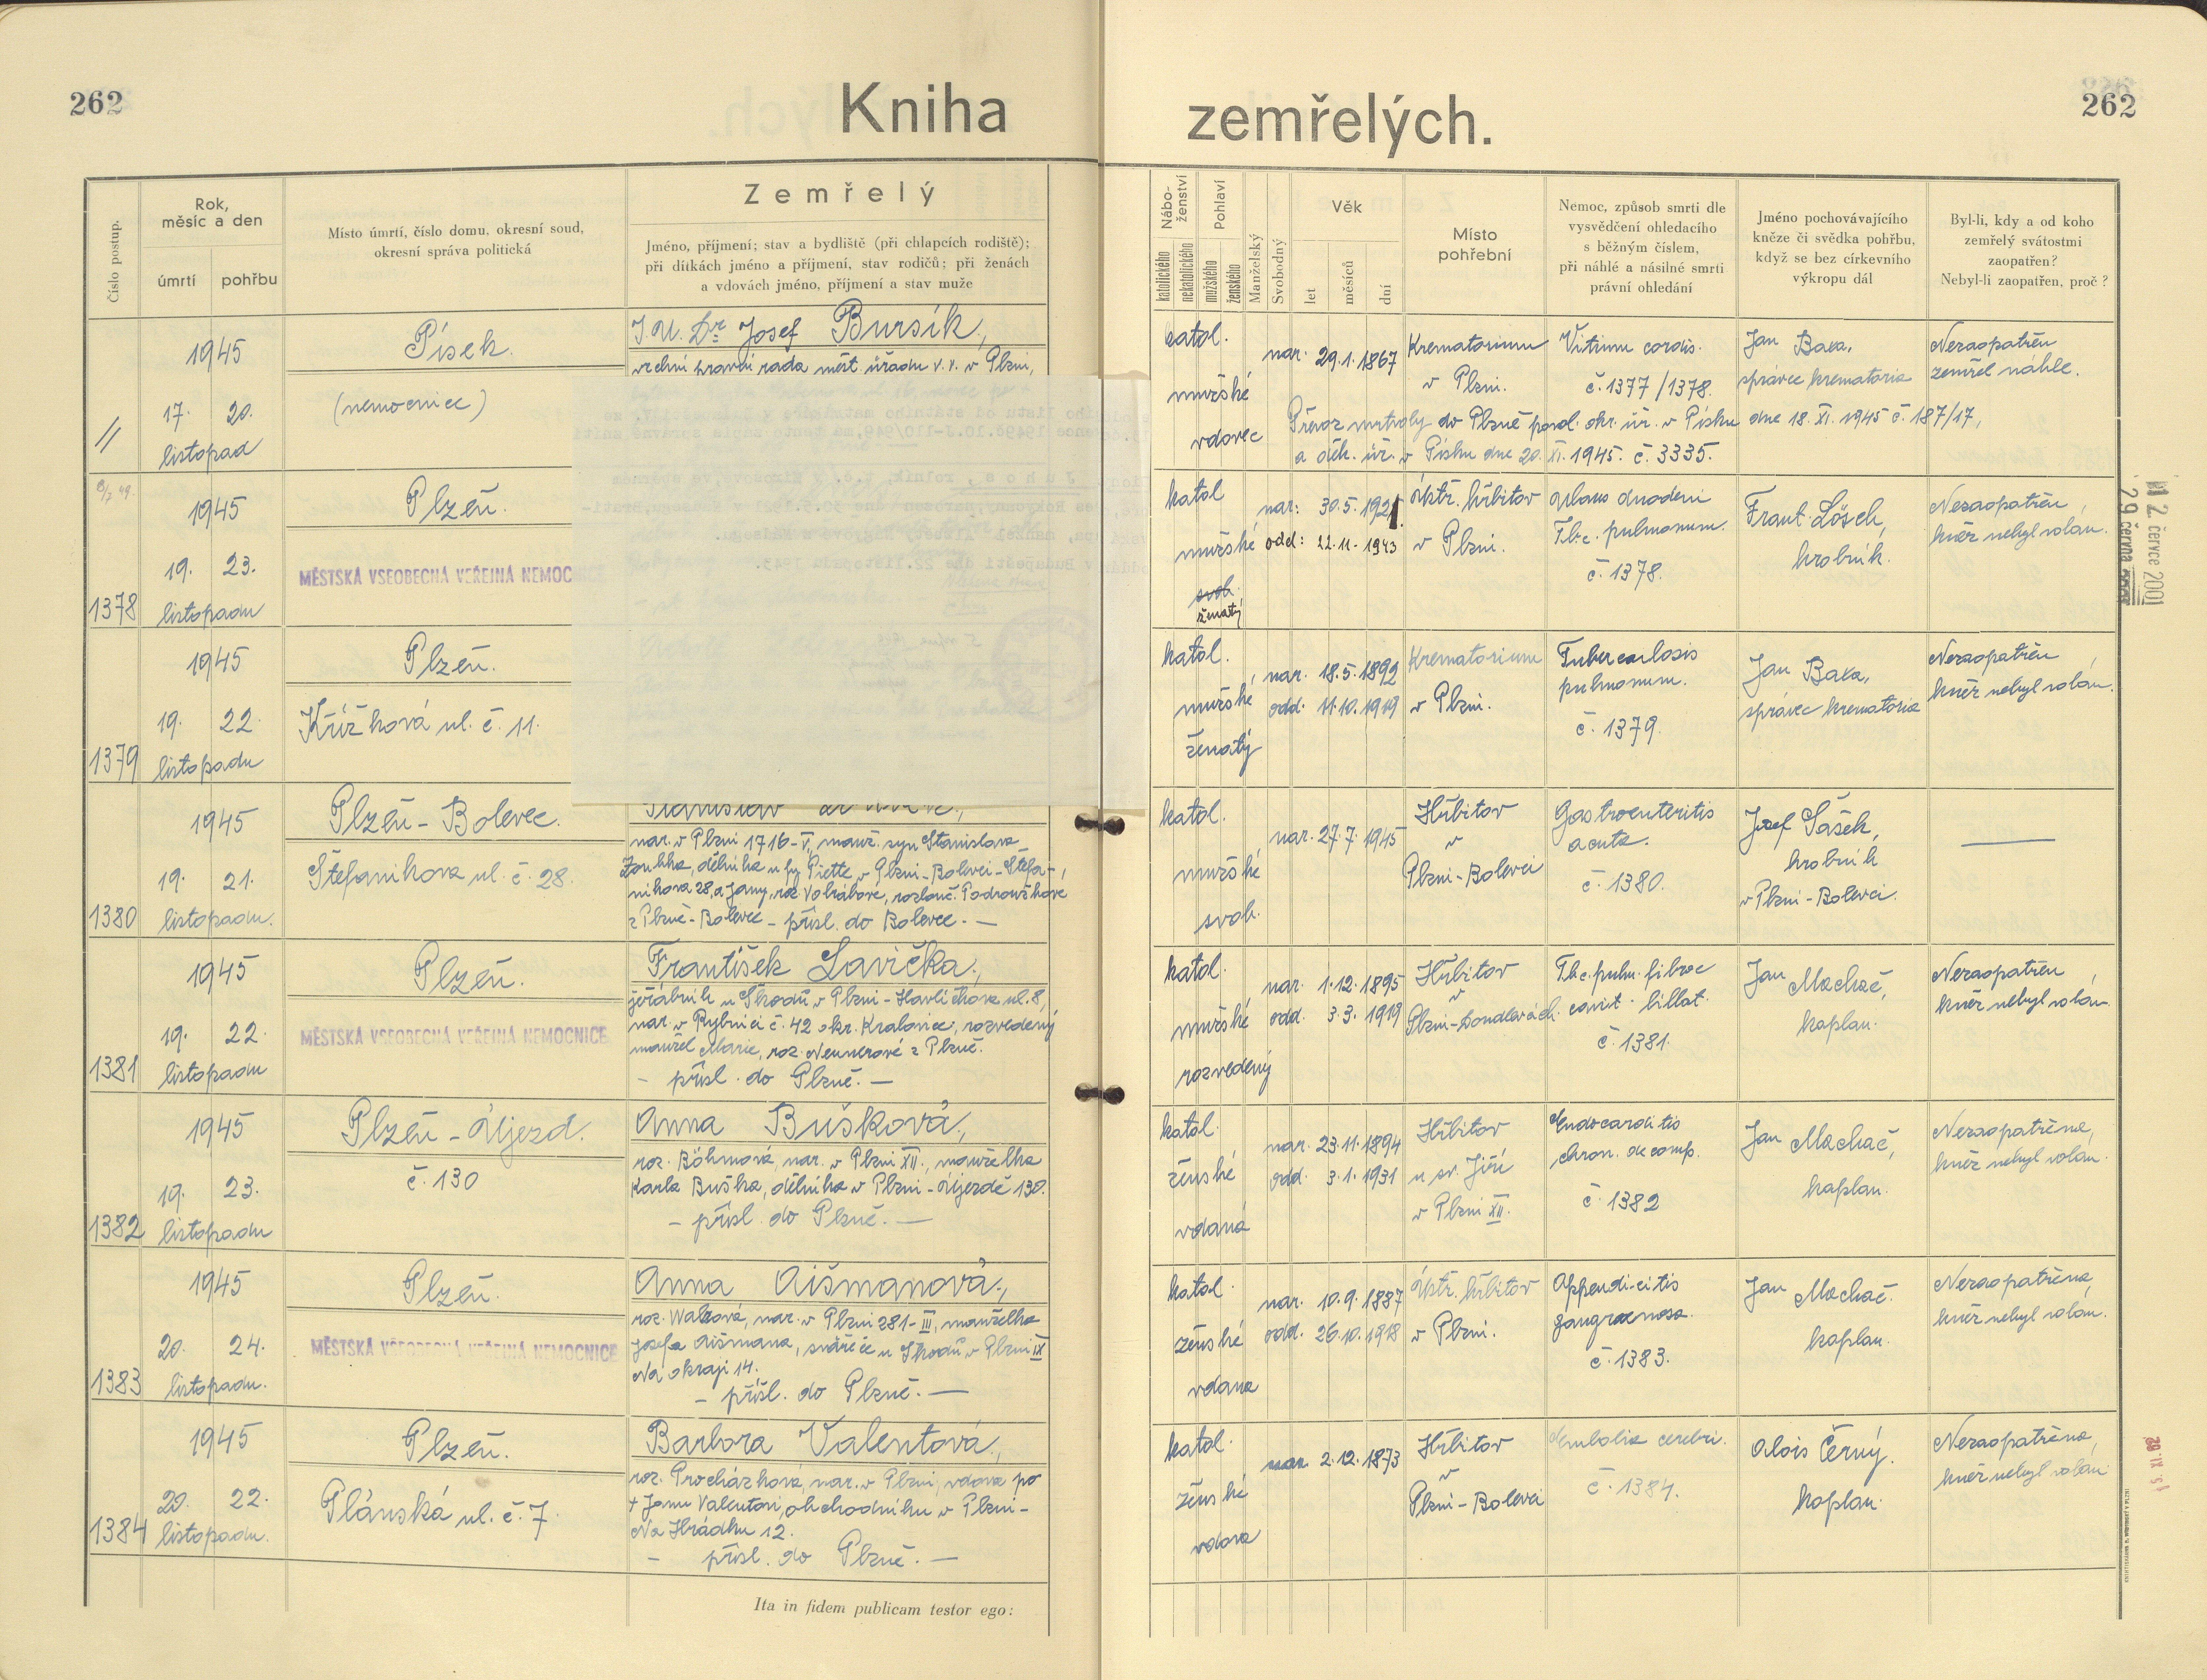 262
Kniha zemřelých.
262
Číslo postup.
Rok,
měsíc a den
úmrtí
pohřbu
Místo úmrtí, číslo domu, okresní soud,
okresní správa politická
Zemřelý
Jméno, příjmení; stav a bydliště (při chlapcích rodiště);
při dítkách jméno a příjmení, stav rodičů; při ženách
a vdovách jméno, příjmení a stav muže
Nábo-
ženství
katolického
nekatolického
Pohlaví
mužského
ženského
Manželský
Svobodný
Věk
let
měsíců
dní
Místo
pohřební
Nemoc, způsob smrti dle
vysvědčení ohledacího
s běžným číslem,
při náhlé a násilné smrti
právní ohledání
Jméno pochovávajícího
kněze či svědka pohřbu,
když se bez církevního
výkropu dál
Byl-li, kdy a od koho
zemřelý svátostmi
zaopatřen?
Nebyl-li zaopatřen, proč?
//
1945
17. 20.
listopad
Písek.
(nemocnice)
J.U.Dr. Josef Bursík,
vrchní právní rada měst. úřadu v. v. v Plzni,
katol.
mužské
vdovec
nar. 29.1.1867
Krematorium
v Plzni.
Vitium cordis.
č. 1377/1378.
Jan Baxa,
správce krematoria
Nezaopatřen
zemřel náhle.
Převoz mrtvoly do Plzně povol. okr. úř. v Písku dne 18. XI. 1945 č. 187/17,
a děk. úř. v Písku dne 20. XI. 1945. č. 3335.
1378
1945
19. 23.
listopadu
Plzeň.
MĚSTSKÁ VŠEOBECNÁ VEŘEJNÁ NEMOCNICE
katol
mužské
svob.
ženatý
nar: 30.5.1921.
odd: 22.11.1943
Ústř. hřbitov
v Plzni.
Ulcus duodeni
Tbc. pulmonum.
č. 1378.
Frant. Lösch,
hrobník.
Nezaopatřen
kněz nebyl volán.
1379
1945
19. 22.
listopadu
Plzeň.
Křížková ul. č. 11.
katol.
mužské
ženatý
nar. 18.5.1892
odd. 11.10.1919
Krematorium
v Plzni.
Tuberculosis
pulmonum.
č. 1379.
Jan Baxa,
správce krematoria
Nezaopatřen
kněz nebyl volán.
1380
1945
19. 21.
listopadu.
Plzeň-Bolevec.
Štefanikova ul. č. 28.
Stanislav
nar. v Plzni 1716-V, manž. syn Stanislava
dělníka u fy Piette v Plzni-Bolevci-Štefa-
nikova 28, a Jany, roz. Vobrabové, rozlouč. Podroužkové
z Plzně-Bolevce - přísl. do Bolevce. —
katol.
mužské
svob.
nar. 27.7.1945
Hřbitov
v
Plzni-Bolevci
Gastroenteritis
acuta.
č. 1380.
Josef Šašek,
hrobník
v Plzni-Bolevci.
—
1381
1945
19. 22.
listopadu
Plzeň.
MĚSTSKÁ VŠEOBECNÁ VEŘEJNÁ NEMOCNICE
František Lavička,
jeřábník u Škodů v Plzni-Havlíčkova ul. 8,
nar. v Rybnici č. 42 okr. Kralovice, rozvedený
manžel Marie, roz. Neunerové z Plzně.
- přísl. do Plzně. —
katol.
mužské
rozvedený
nar. 1.12.1895
odd. 3.3.1919
Hřbitov
v
Plzni-Doudlevcích.
Tbc. pulm. fibroc
cavit. billat.
č. 1381.
Jan Machač,
kaplan.
Nezaopatřen
kněz nebyl volán.
1382
1945
19. 23.
listopadu
Plzeň-Újezd.
č. 130
Anna Bušková,
roz. Böhmová, nar. v Plzni XII., manželka
Karla Buška, dělníka v Plzni-Újezdě 130.
- přísl. do Plzně. —
katol.
ženské
vdaná
nar. 23.11.1894
odd. 3.1.1931
Hřbitov
u sv. Jiří
v Plzni XII.
Endocarditis
chron. decomp.
č. 1382
Jan Machač,
kaplan.
Nezaopatřena,
kněz nebyl volán.
1383
1945
20. 24.
listopadu.
Plzeň.
MĚSTSKÁ VŠEOBECNÁ VEŘEJNÁ NEMOCNICE
Anna Aišmanová,
roz. Walzová, nar. v Plzni 281-III, manželka
Josefa Aišmana, svářeče u Škodů v Plzni IX
Na okraji 14.
- přísl. do Plzně. —
katol.
ženské
vdana
nar. 10.9.1887
odd. 26.10.1918
Ústř. hřbitov
v Plzni.
Appendicitis
gangraenosa.
č. 1383.
Jan Machač.
kaplan.
Nezaopatřena,
kněz nebyl volán.
1384
1945
20. 22.
listopadu.
Plzeň.
Plánská ul. č. 7.
Barbora Valentová,
roz. Procházková, nar. v Plzni, vdova po
+ Janu Valentovi, obchodníku v Plzni-
Na Hrádku 12.
- přísl. do Plzně. —
katol.
ženské
vdova
nar. 2.12.1873
Hřbitov
v
Plzni-Bolevci
Embolia cerebri.
č. 1384.
Alois Černý.
kaplan.
Nezaopatřena,
kněz nebyl volán
Ita in fidem publicam testor ego:
12 červce 2001
29 června 2001